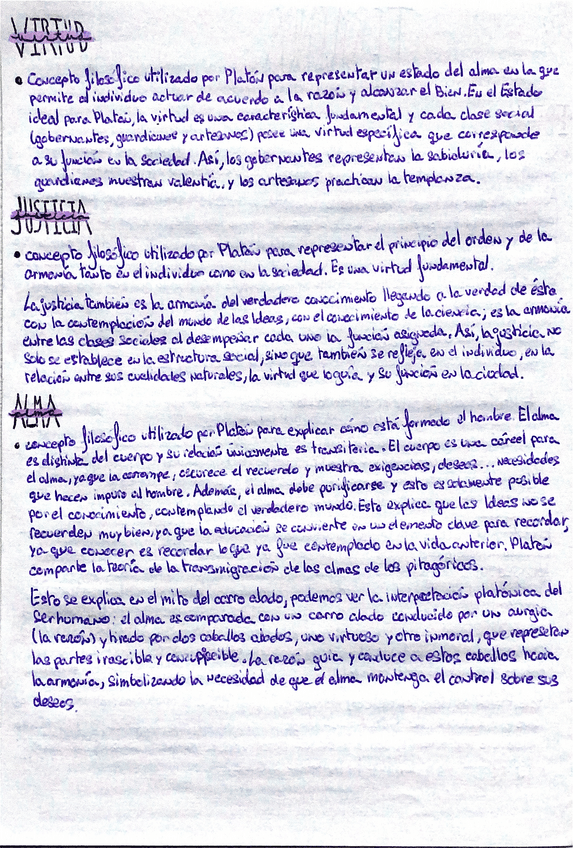 VIRTUD
virtud
• Concepto filosófico utilizado por Platón para representar un estado del alma en la que
permite al individuo actuar de acuerdo a la razón y alcanzar el Bien. En el Estado
ideal para Platón, la virtud es una característica fundamental y cada clase social
(gobernantes, guardianes y artesanos) posee una virtud específica que corresponde
a su función en la sociedad. Así, los gobernantes representan la sabiduría, los
guardianes muestran valentía, y los artesanos practican la templanza.
JUSTICIA
justicia
• concepto filosófico utilizado por Platón para representar el principio del orden y de la
armonía tanto en el individuo como en la sociedad. Es una virtud fundamental.
La justicia también es la armonía del verdadero conocimiento llegando a la verdad de ésta
con la contemplación del mundo de las Ideas, con el conocimiento de la ciencia; es la armonía
entre las clases sociales al desempeñar cada uno la función asignada. Así, la justicia no
solo se establece en la estructura social, sino que también se refleja en el individuo, en la
relación entre sus cualidades naturales, la virtud que lo guía y su función en la ciudad.
ALMA
alma
• concepto filosófico utilizado por Platón para explicar cómo está formado el hombre. El alma
es distinta del cuerpo y su relación únicamente es transitoria. El cuerpo es una cárcel para
el alma, ya que la corrompe, oscurece el recuerdo y muestra exigencias, deseos... necesidades
que hacen impuro al hombre. Además, el alma debe purificarse y esto es solamente posible
por el conocimiento, contemplando el verdadero mundo. Esto explica que las Ideas no se
recuerden muy bien, ya que la educación se convierte en un elemento clave para recordar,
ya que conocer es recordar lo que ya fue contemplado en la vida anterior. Platón
comparte la teoría de la transmigración de las almas de los pitagóricos.
Esto se explica en el mito del carro alado, podemos ver la interpretación platónica del
Ser humano: el alma es comparada con un carro alado conducido por un auriga
(la razón) y tirado por dos caballos alados, uno virtuoso y otro inmoral, que representan
las partes irascible y concupiscible. La razón guía y conduce a estos caballos hacia
la armonía, simbolizando la necesidad de que el alma mantenga el control sobre sus
deseos.